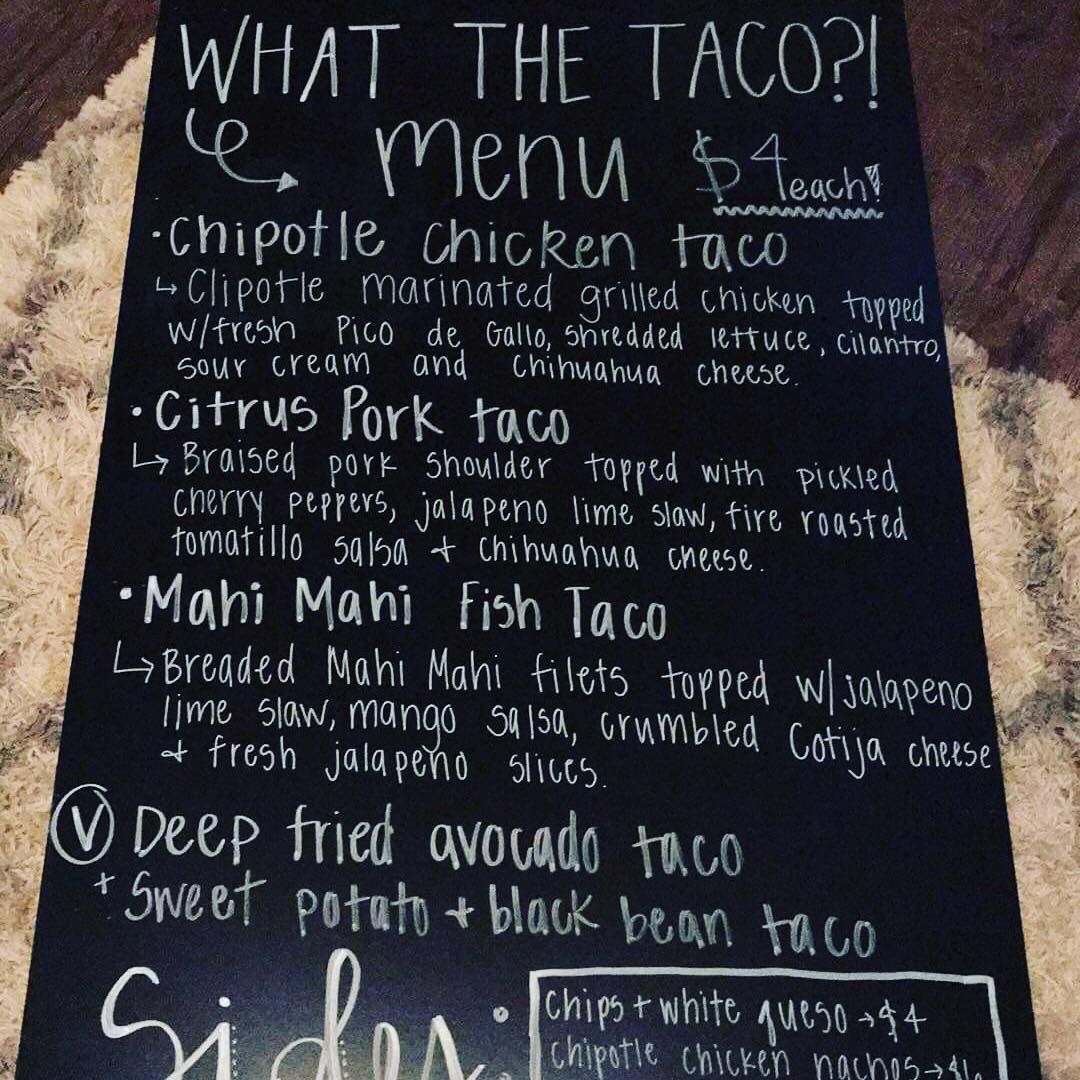 WHAT THE TACO?!
Menu $4 each!
·Chipotle chicken taco
↳ Clipotle marinated grilled chicken topped
w/fresh Pico de Gallo, shredded lettuce, cilantro,
sour cream and chihuahua cheese.
·Citrus Pork taco
↳ Braised pork shoulder topped with pickled
cherry peppers, jalapeno lime slaw, fire roasted
tomatillo salsa + chihuahua cheese.
·Mahi Mahi Fish Taco
↳ Breaded Mahi Mahi filets topped w/jalapeno
lime slaw, mango salsa, crumbled Cotija cheese
+ fresh jalapeño slices.
Ⓥ Deep fried avocado taco
+ Sweet potato + black bean taco
Sides:
chips + white queso → $4
chipotle chicken nachos →